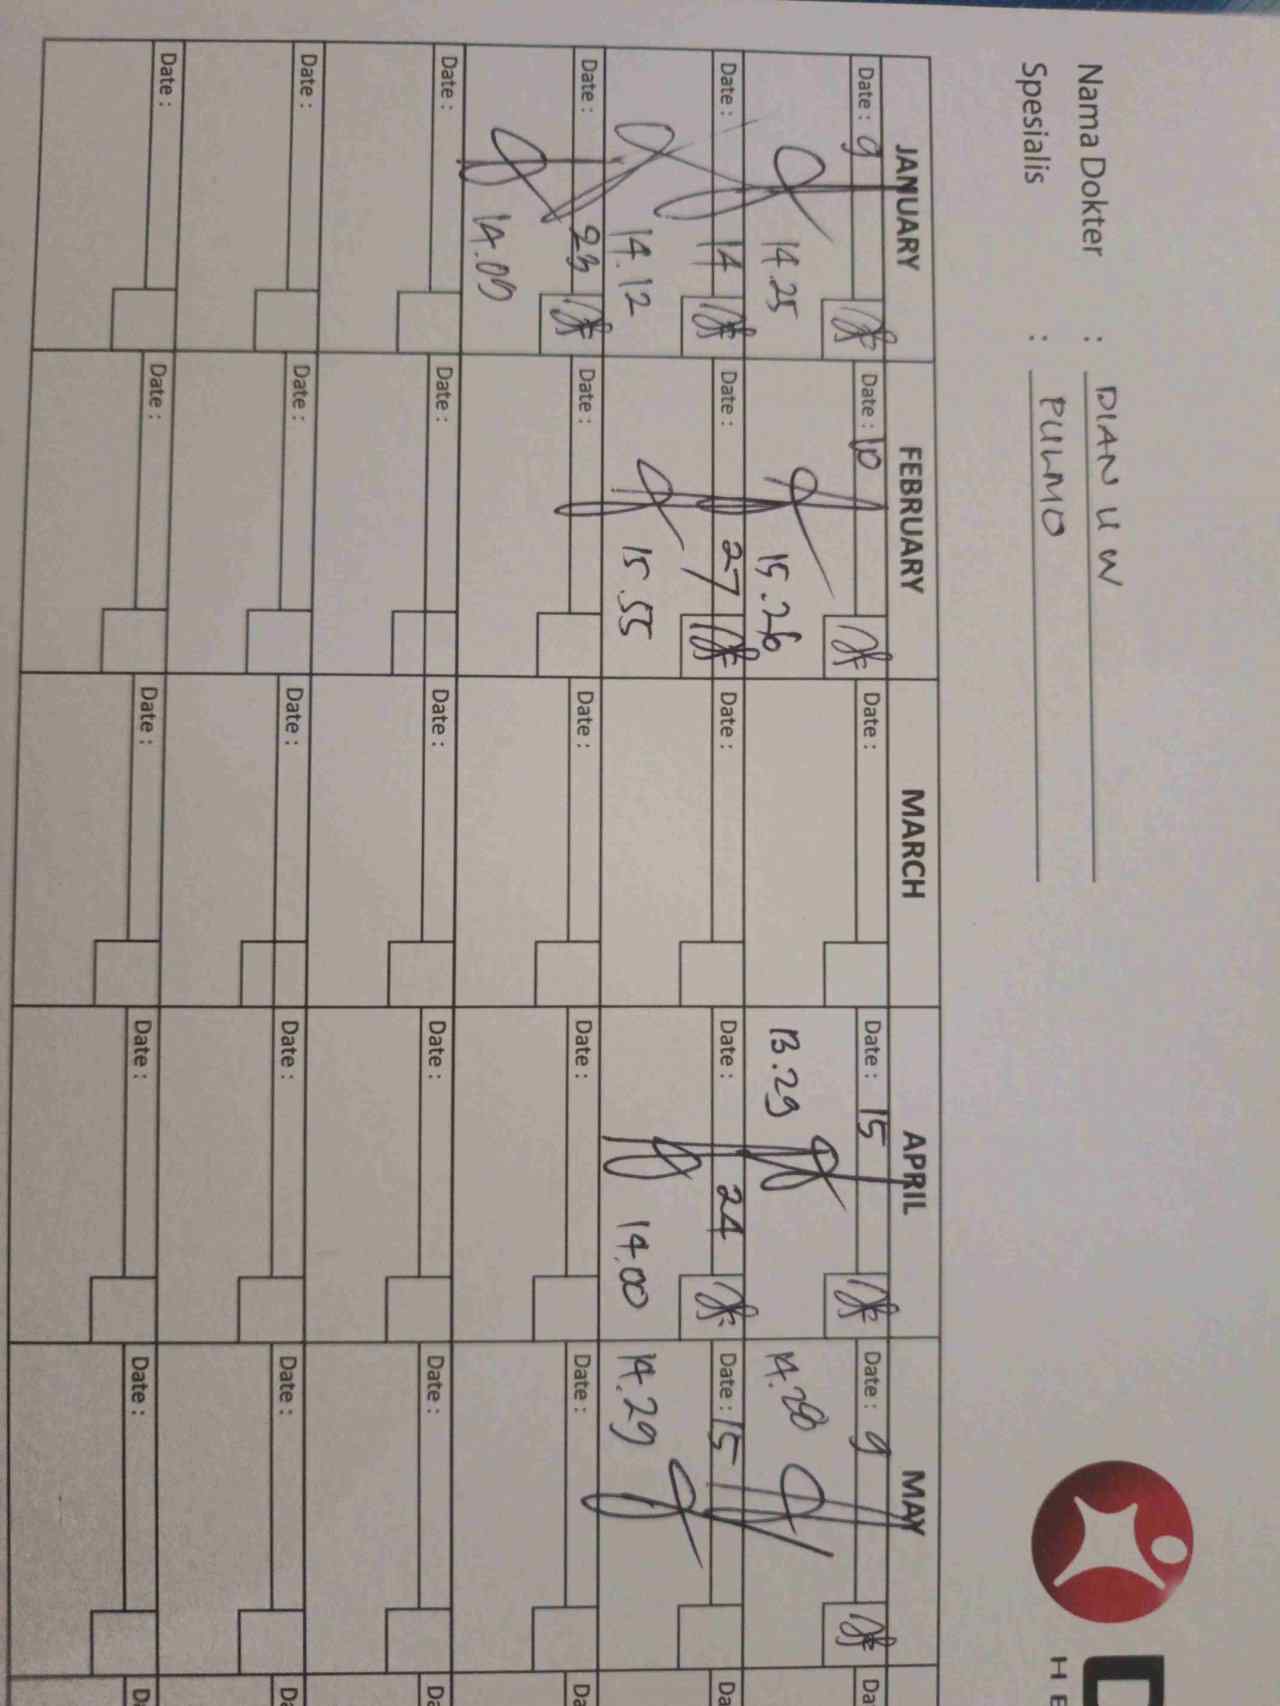 Nama Dokter : DIAN U W
Spesialis : PULMO
HE
JANUARY FEBRUARY MARCH APRIL MAY
Date : 9 Date : 10 Date : Date : 15 Date : 9 Da
14.25 15.26 13.29 14.20
Date : 14 Date : 27 Date : Date : 24 Date : 15 Da
14.12 15.55 14.00 14.29
Date : 23 Date : Date : Date : Date : Da
14.09
Date : Date : Date : Date : Date : Da
Date : Date : Date : Date : Date : Da
Date : Date : Date : Date : Date : Da